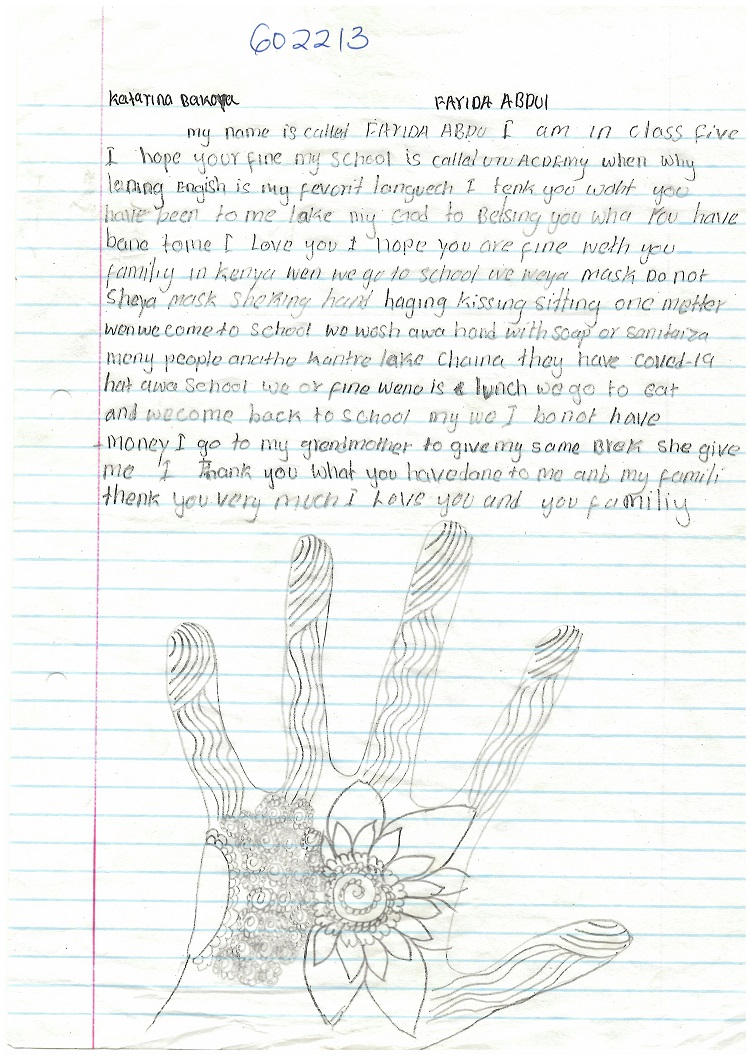 602213
Katarina Bakova FARIDA ABDUl
my name is called FARIDA ABDU I am in class five
I hope your fine my school is called UTU ACDEMY when why
lerning Engish is my fevorit languech I tenk you waht you
have been to me lake my God to Belsing you wha You have
bane tome I Love you I hope you are fine weth you
familiy in kenya wen we go to school we weya mask Do not
Sheya mask sheking hand haging kissing sitting one metter
wenwe come to school we wosh awa hand with soap or sanitaiza
meny people anathe kantre lake chaina they have coved-19
hat awa school we or fine wene is lunch we go to eat
and wecome back to school my we I bo not have
money I go to my grandmother to give my same Brek she give
me I thank you what you have dane to me anb my famili
thenk you very much I Love you and you familiy